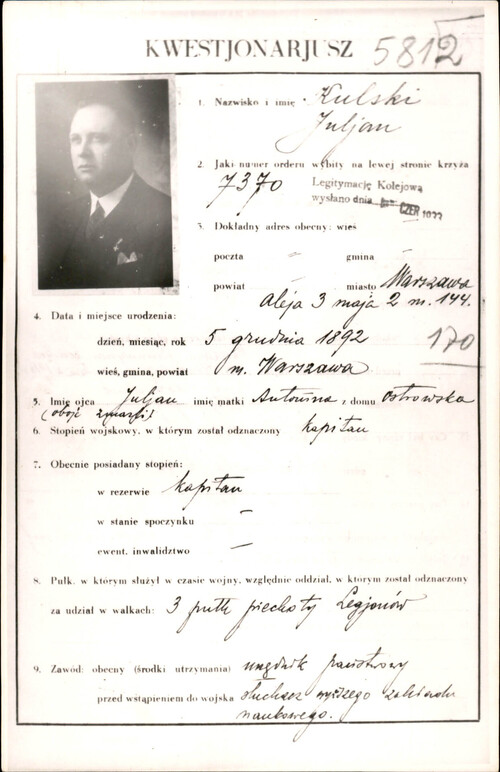 KWESTJONARJUSZ 5812
1. Nazwisko i imię Kulski
Juljan
2. Jaki numer orderu wybity na lewej stronie krzyża
7370 Legitymację Kolejową
wysłano dnia CZER
3. Dokładny adres obecny: wieś
poczta – gmina –
powiat – miasto Warszawa
Aleja 3 maja 2 m. 144.
4. Data i miejsce urodzenia:
dzień, miesiąc, rok 5 grudnia 1892 170
wieś, gmina, powiat m. Warszawa
5. Imię ojca Juljan imię matki Antonina z domu Ostrowska
(oboje zmarli)
6. Stopień wojskowy, w którym został odznaczony kapitan
7. Obecnie posiadany stopień:
w rezerwie kapitan
w stanie spoczynku –
ewent. inwalidztwo –
8. Pułk, w którym służył w czasie wojny, względnie oddział, w którym został odznaczony
za udział w walkach: 3 pułk piechoty Legjonów
9. Zawód: obecny (środki utrzymania) urzędnik państwowy
przed wstąpieniem do wojska słuchacz wyższego zakładu
naukowego.